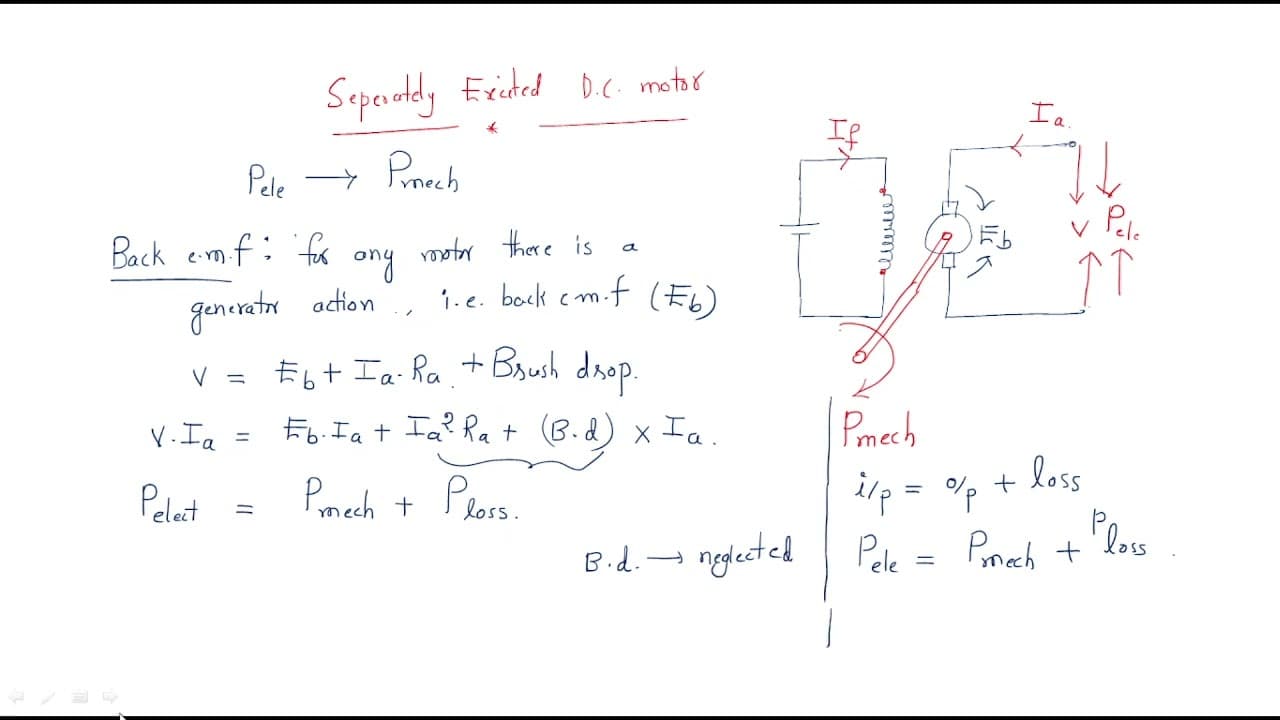 Seperately Excited D.C. motor
*
Pele → Pmech
Back e.m.f : for any motor there is a
generator action ., i.e. back e m.f (Eb)
V = Eb + Ia. Ra. + Brush drop.
V.Ia = Eb.Ia + Ia² Ra + (B.d) × Ia.
Pelect = Pmech + Ploss.
B.d. → neglected
If
Ia.
Eb
V Pele
Pmech
i/p = o/p + loss
Pele = Pmech + Ploss .